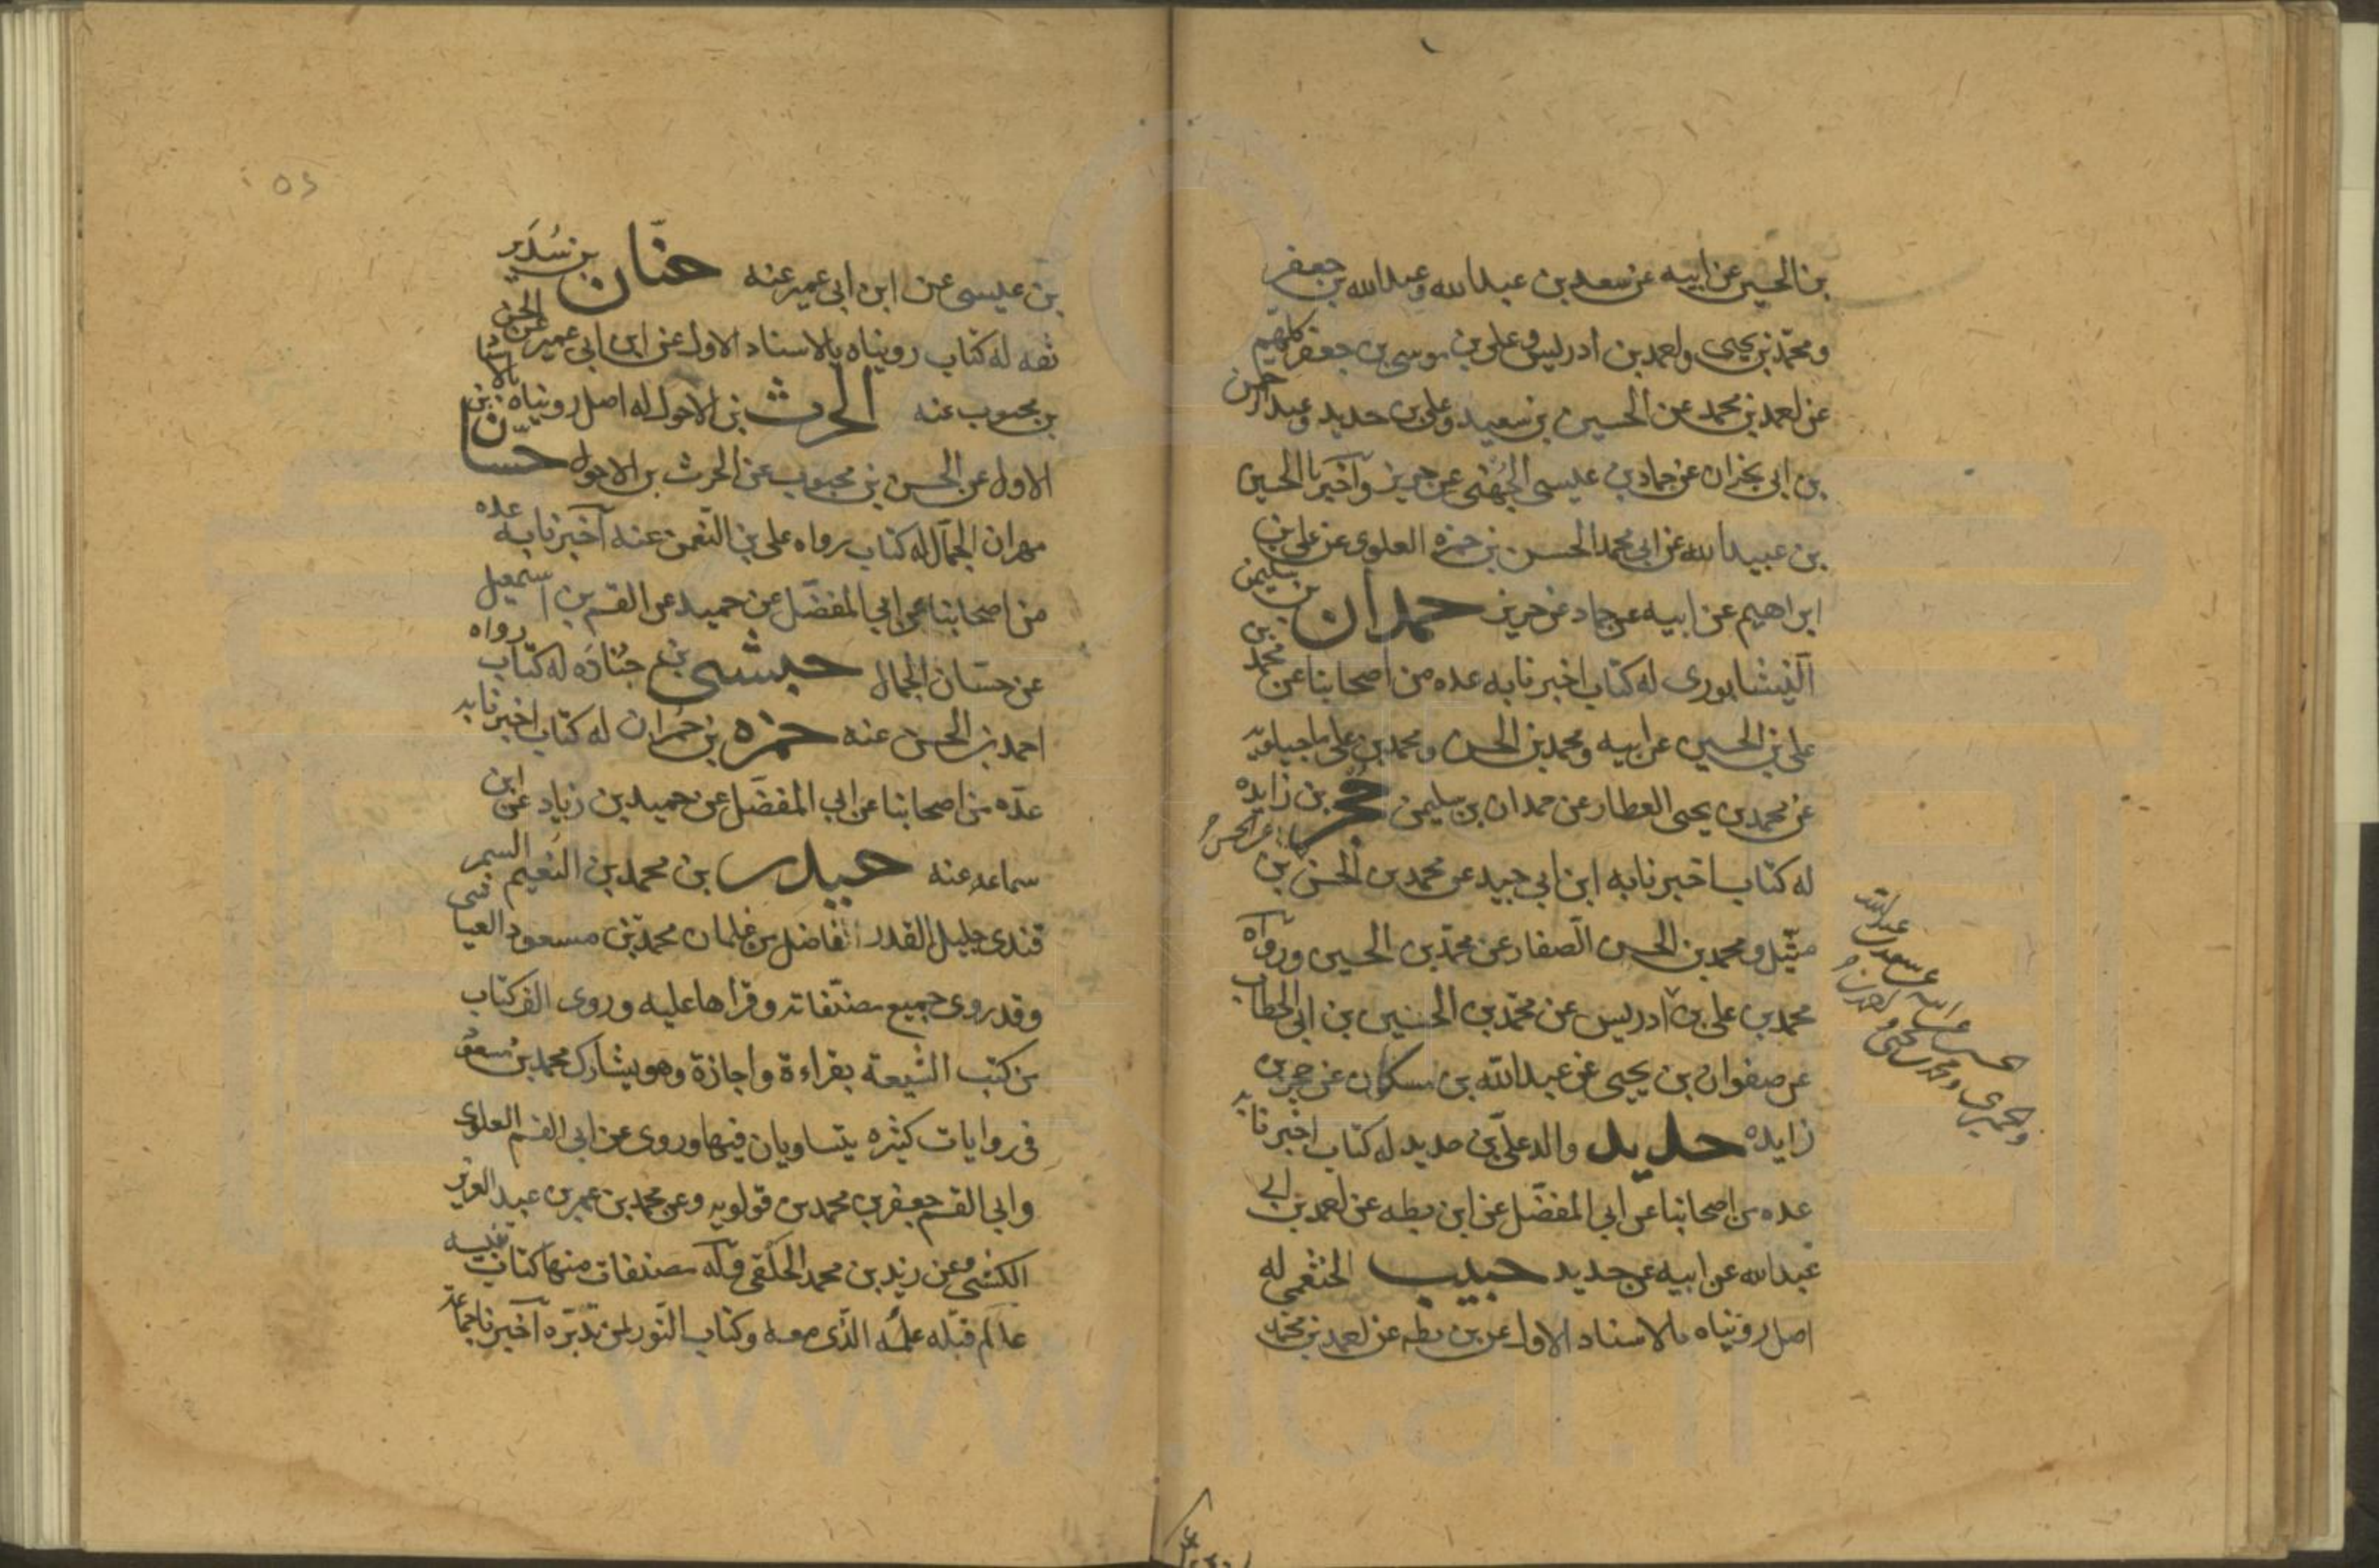 بن الحسين عن ابيه عن سعد بن عبدالله وعبدالله بن جعفر
ومحمّد بن يحيى واحمد بن ادريس وعلى بن موسى بن جعفر كلهم
عن احمد بن محمد عن الحسين بن سعيد وعلى بن حديد وعبد الرحمن
بن ابى نجران عن حماد بن عيسى الجهنى عن حريز وآخبرنا الحسين
بن عبيدالله عن ابى محمد الحسن بن حمزه العلوى عن على بن
ابراهيم عن ابيه عن حماد عن حريز حمدان بن سليمن
النيشابورى له كتاب اخبرنا به عده من اصحابنا عن محمد بن
على بن الحسين عن ابيه ومحمد بن الحسن ومحمد بن على ماجيلويه
عن محمد بن يحيى العطار عن حمدان بن سليمن حجر بن زايده
له كتاب اخبرنا به ابن ابى جيد عن محمد بن الحسن بن
متّيل ومحمد بن الحسن الصفار عن محمّد بن الحسين ورواه
محمد بن على بن ادريس عن محمّد بن الحسين بن ابى الخطاب
عن صفوان بن يحيى عن عبدالله بن مسكان عن حجر بن
زايده حديد والد علىّ بن حديد له كتاب اخبرنا به
عده من اصحابنا عن ابى المفضّل عن ابن بطه عن احمد بن ابى
عبدالله عن ابيه عن حديد حبيب الخثعمى له
اصل رويناه بالاسناد الاول عن بن بطه عن احمد بن محمد
عبدالله
عن سعد بن
والحميرى ومحمد بن يحيى و احمد بن
٥٢
بن عيسى عن ابن ابى عمير عنه حنّان بن سُدَير
ثقه له كتاب رويناه بالاسناد الاول عن ابن ابى عمير عن الحسن
بن محبوب عنه الحرث بن الاحول له اصل رويناه بالاسناد
الاول عن الحسن بن محبوب عن الحرث بن الاحول حسّان بن
مهران الجمّال له كتاب رواه على بن النعمن عنه آخبرنا به عده
من اصحابنا عن ابى المفضّل عن حميد عن القسم بن اسمعيل
عن حسّان الجمال حبشى بن جُنادَه له كتاب رواه
احمد بن الحسن عنه حمزه بن حمران له كتاب اخبرنا به
عدّه من اصحابنا عن ابى المفضّل عن حميد بن زياد عن ابن
سماعه عنه حيدر بن محمد بن النعيم السمر
قندى جليل القدر فاضل من غلمان محمّد بن مسعود العياشى
وقد روى جميع مصنّفاته وقراها عليه وروى الف كتاب
من كتب الشيعة بقراءة واجازة وهو يشارك محمد بن مسعود
فى روايات كثيره يتساويان فيها وروى عن ابى القسم العلوى
وابى القسم جعفر بن محمد بن قولويه وعن محمد بن عمر بن عبد العزيز
الكشى وعن زيد بن محمد الحلقى وله مصنفات منها كتاب تنبيه
عالم قبّله علمه الذى معه وكتاب النّور لمن تدبّره آخبرنا جماعة